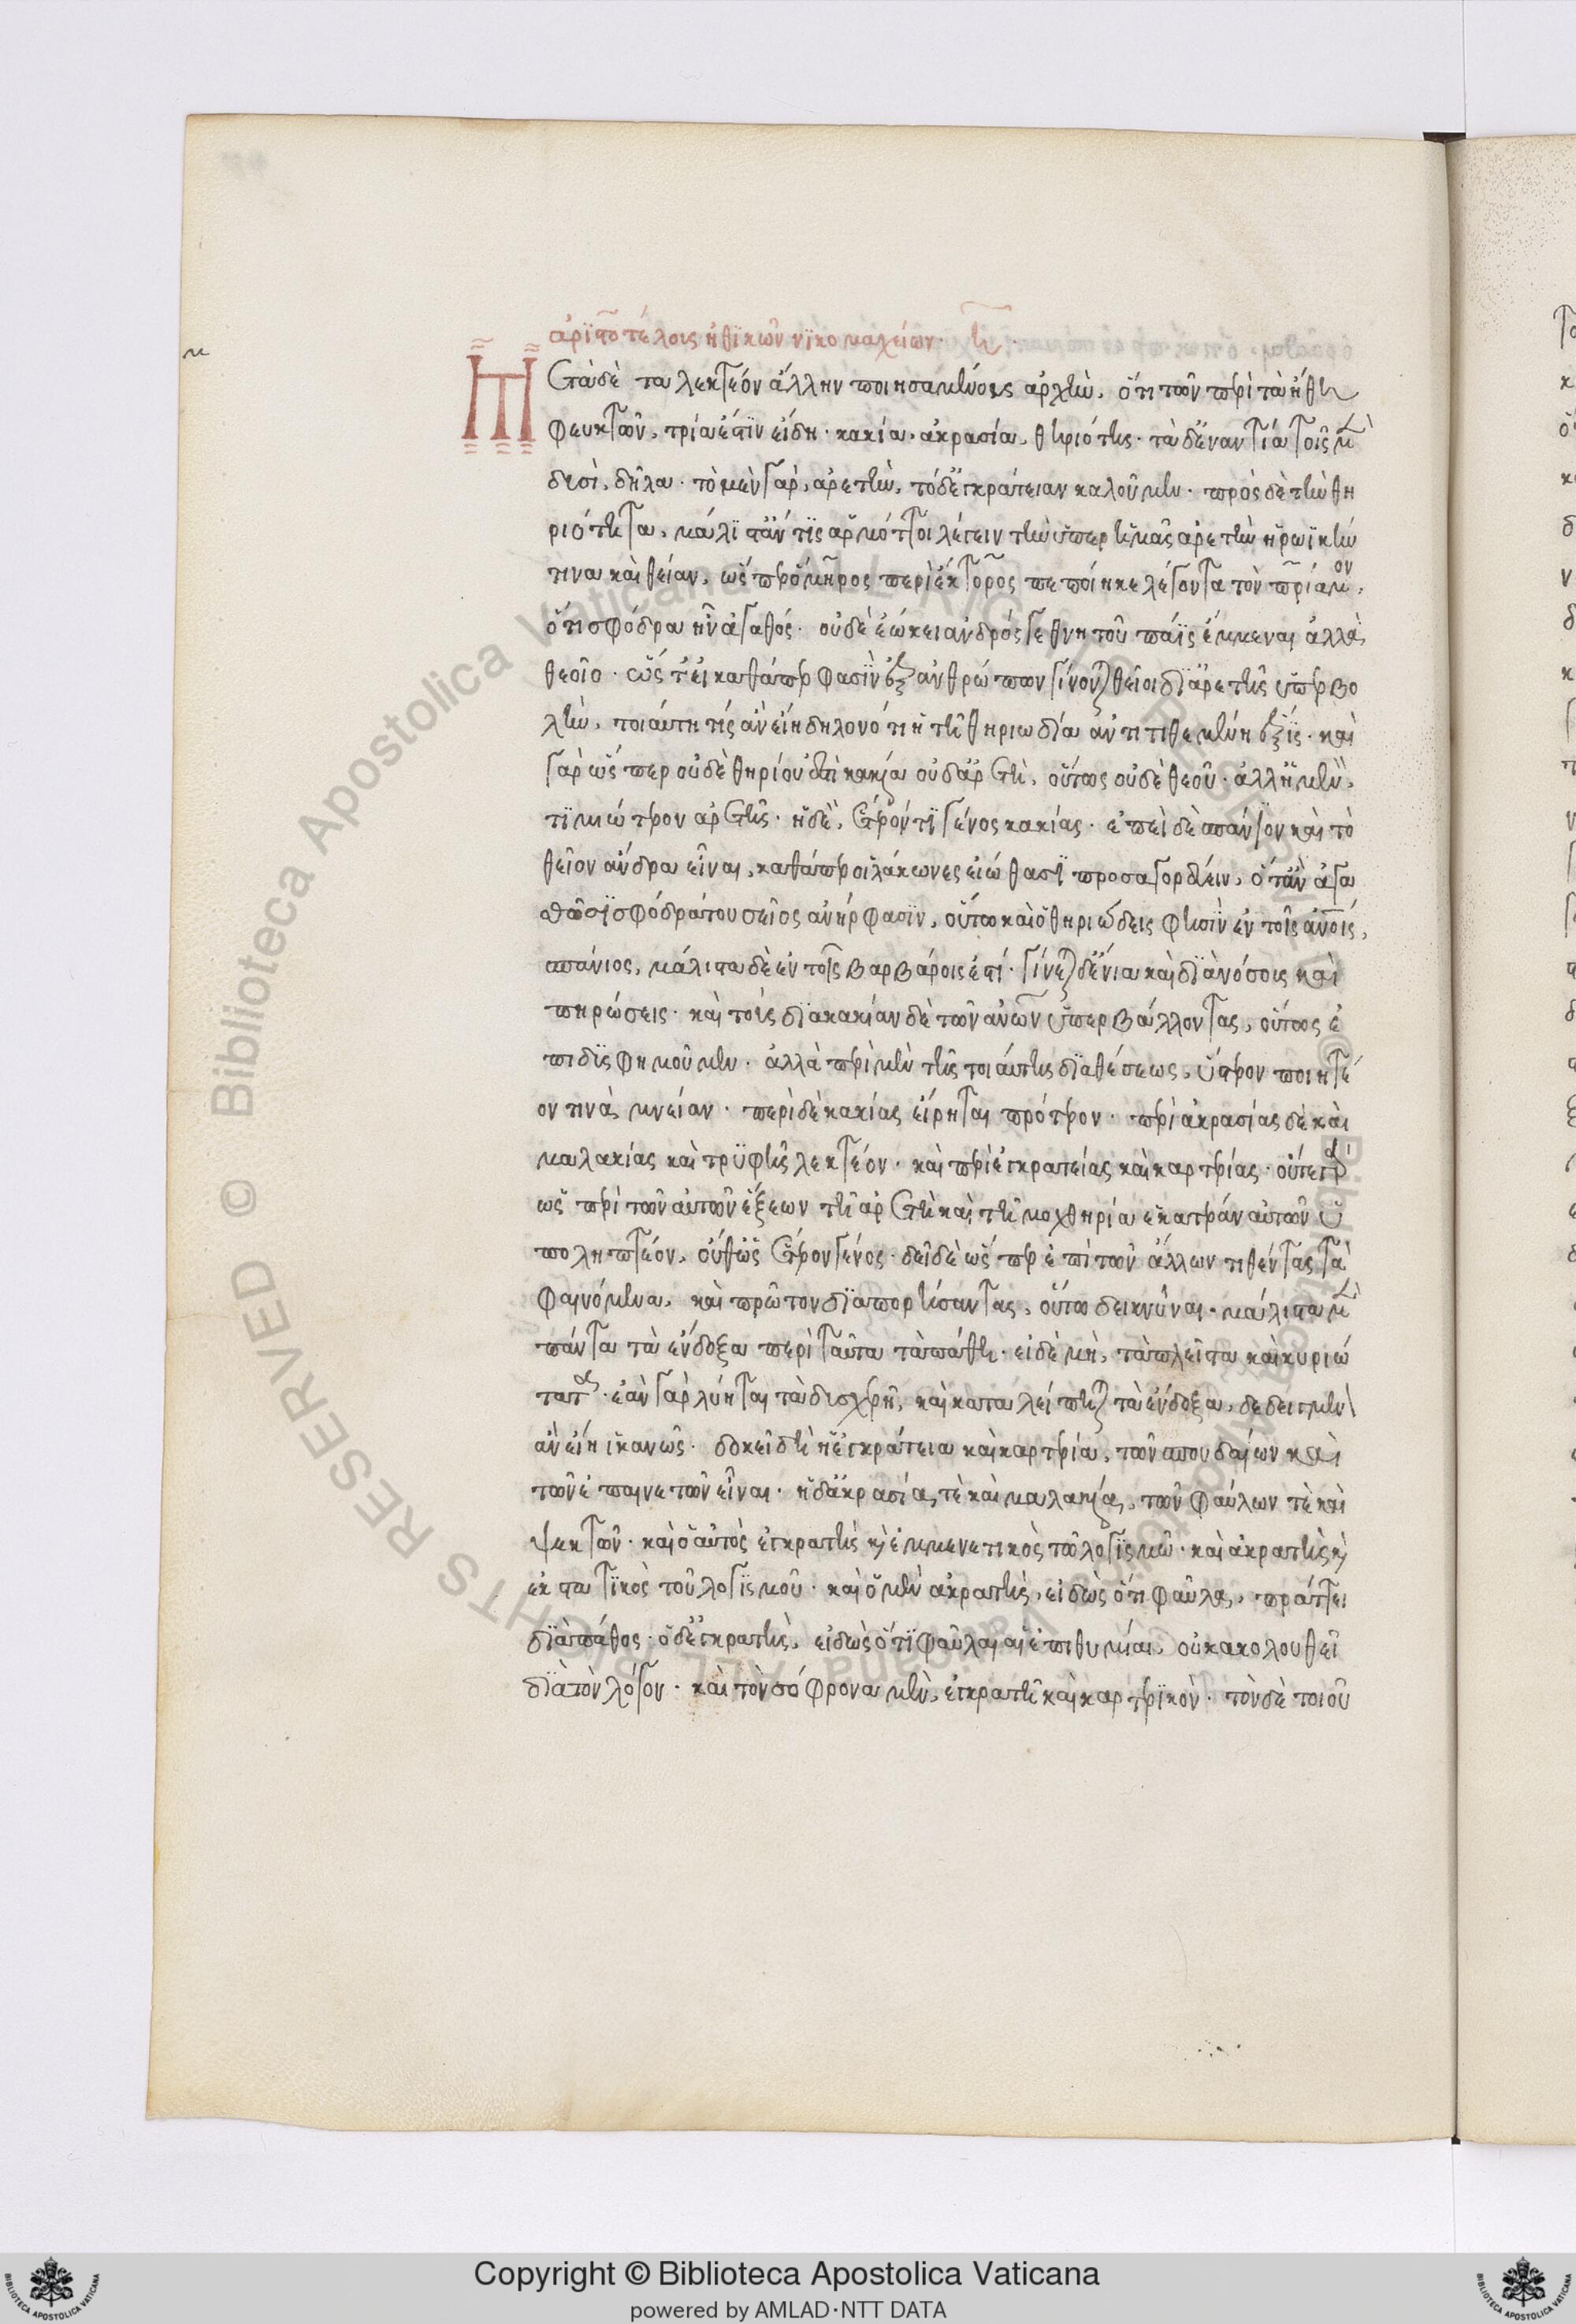 ἀριστοτέλους ἠθικῶν νικομαχείων · η ·
Μετὰ δὲ ταῦτα λεκτέον ἄλλην ποιησαμένους ἀρχὴν, ὅτι τῶν περὶ τὰ ἤθη
φευκτῶν, τρία ἐστὶν εἴδη · κακία, ἀκρασία, θηριότης · τὰ δ' ἐναντία τοῖς μὲν
δυσὶ, δῆλα · τὸ μὲν γὰρ, ἀρετὴν, τὸ δ' ἐγκράτειαν καλοῦμεν · πρὸς δὲ τὴν θη
ριότητα, μάλιστ' ἄν τις ἁρμόττοι λέγειν τὴν ὑπὲρ ἡμᾶς ἀρετὴν ἡρωϊκήν
τινα καὶ θείαν, ὥσπερ ὅμηρος περὶ ἕκτορος πεποίηκε λέγοντα τὸν πρίαμον,
ὅτι σφόδρα ἦν ἀγαθός · οὐδὲ ἐώκει ἀνδρός γε θνητοῦ πάϊς ἔμμεναι ἀλλὰ
θεοῖο · ὥστ' εἰ καθάπερ φασὶν ἐξ ἀνθρώπων γίνονται θεοὶ δι' ἀρετῆς ὑπερβο
λὴν, τοιαύτη τίς ἂν εἴη δηλονότι ἡ τῇ θηριωδία ἀντιτιθεμένη ἕξις · καὶ
γὰρ ὥσπερ οὐδὲ θηρίου ἐστὶ κακία οὐδ' ἀρετὴ, οὕτως οὐδὲ θεοῦ · ἀλλ' ἡ μὲν,
τιμιώτερον ἀρετῆς · ἡ δὲ, ἕτερόν τι γένος κακίας · ἐπεὶ δὲ σπάνιον καὶ τὸ
θεῖον ἄνδρα εἶναι, καθάπερ οἱ λάκωνες εἰώθασι προσαγορεύειν, ὅταν ἀγα
σθῶσι σφόδρα του σεῖος ἀνήρ φασιν, οὕτω καὶ ὁ θηριώδεις φησὶν ἐν τοῖς ἀνοις,
σπάνιος, μάλιστα δὲ ἐν τοῖς βαρβάροις ἐστί · γίνεται δ' ἔνια καὶ διὰ νόσους καὶ
πηρώσεις · καὶ τοὺς διὰ κακίαν δὲ τῶν ἀνων ὑπερβάλλοντας, οὕτως ἐ
πιδυσφημοῦμεν · ἀλλὰ περὶ μὲν τῆς τοιαύτης διαθέσεως, ὕστερον ποιητέ
ον τινὰ μνείαν · περὶ δὲ κακίας εἴρηται πρότερον · περὶ ἀκρασίας δὲ καὶ
μαλακίας καὶ τρυφῆς λεκτέον · καὶ περὶ ἐγκρατείας καὶ καρτερίας · οὔτε γὰρ
ὡς περὶ τῶν αὐτῶν ἕξεων τῇ ἀρετῇ καὶ τῇ μοχθηρία ἑκατέραν αὐτῶν ὑ
ποληπτέον, οὔθ' ὡς ἕτερον γένος · δεῖ δὲ ὥσπερ ἐπὶ τῶν ἄλλων τιθέντας τὰ
φαινόμενα, καὶ πρῶτον διαπορήσαντας, οὕτω δεικνύναι · μάλιστα μὲν
πάντα τὰ ἔνδοξα περὶ ταῦτα τὰ πάθη · εἰ δὲ μὴ, τὰ πλεῖστα καὶ κυριώ
τατα · ἐὰν γὰρ λύηται τὰ δυσχερῆ, καὶ καταλείπηται τὰ ἔνδοξα, δεδειγμένον
ἂν εἴη ἱκανῶς · δοκεῖ δὴ ἡ ἐγκράτεια καὶ καρτερία, τῶν σπουδαίων καὶ
τῶν ἐπαινετῶν εἶναι · ἡ δ' ἀκρασία τὲ καὶ μαλακία, τῶν φαύλων τὲ καὶ
ψεκτῶν · καὶ ὁ αὐτὸς ἐγκρατὴς καὶ ἐμμενετικὸς τῷ λογισμῷ · καὶ ἀκρατὴς καὶ
ἐκστατικὸς τοῦ λογισμοῦ · καὶ ὁ μὲν ἀκρατὴς, εἰδὼς ὅτι φαῦλα, πράττει
διὰ πάθος · ὁ δ' ἐγκρατὴς, εἰδὼς ὅτι φαῦλαι αἱ ἐπιθυμίαι, οὐκ ἀκολουθεῖ
διὰ τὸν λόγον · καὶ τὸν σώφρονα μὲν, ἐγκρατῆ καὶ καρτερικὸν · τὸν δὲ τοιοῦ
© Biblioteca Apostolica Vaticana ALL RIGHTS RESERVED
Copyright © Biblioteca Apostolica Vaticana
powered by AMLAD·NTT DATA